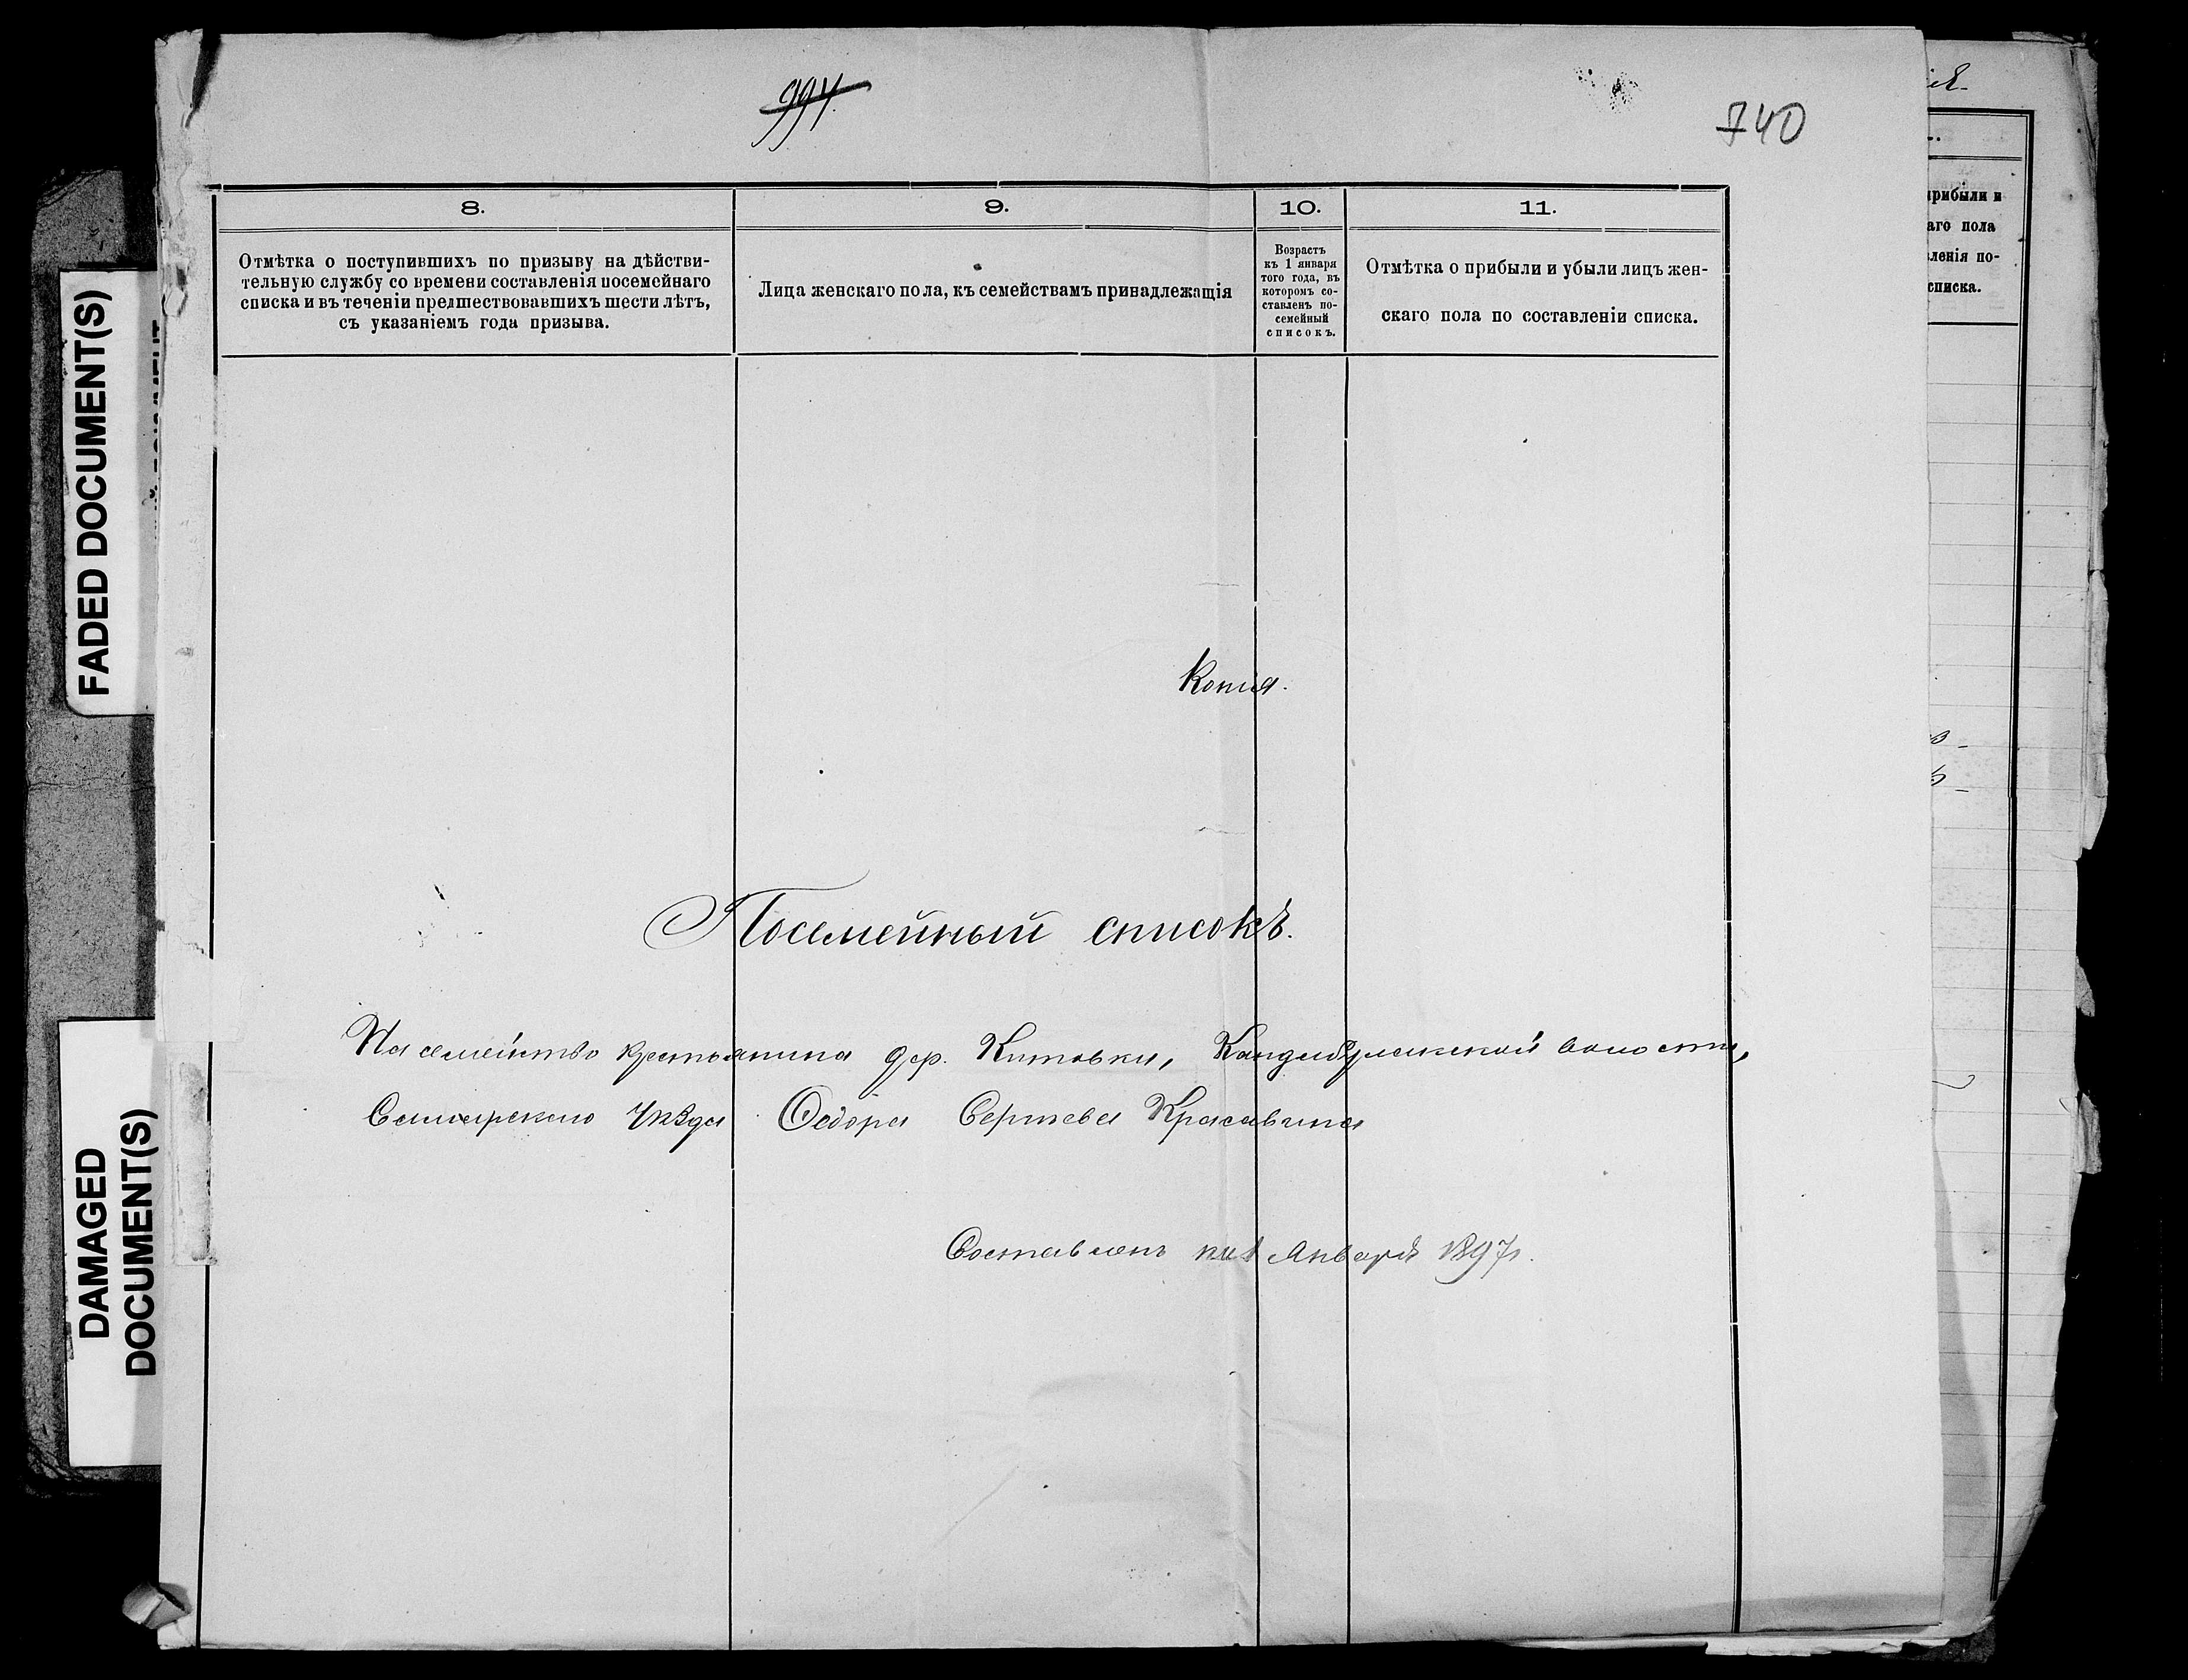 994.
740
8.
9.
10.
11.
Отмѣтка о поступившихъ по призыву на дѣйстви-
тельную службу со времени составленія посемейнаго
списка и въ теченіи предшествовавшихъ шести лѣтъ,
съ указаніемъ года призыва.
Лица женскаго пола, къ семействамъ принадлежащія
Возрастъ
къ 1 января
того года, въ
которомъ со-
ставленъ по-
семейный
списокъ.
Отмѣтка о прибыли и убыли лицъ жен-
скаго пола по составленіи списка.
Копія.
Посемейный списокъ.
На семейство крестьянина дер. Китовки, Кандабулакской волости,
Самарскаго Уѣзда Ѳедора Сергѣева Красавина
Составленъ на 1 Января 1897 г.
FADED DOCUMENT(S)
DAMAGED
DOCUMENT(S)
прибыли и
аго пола
вленія по-
списка.